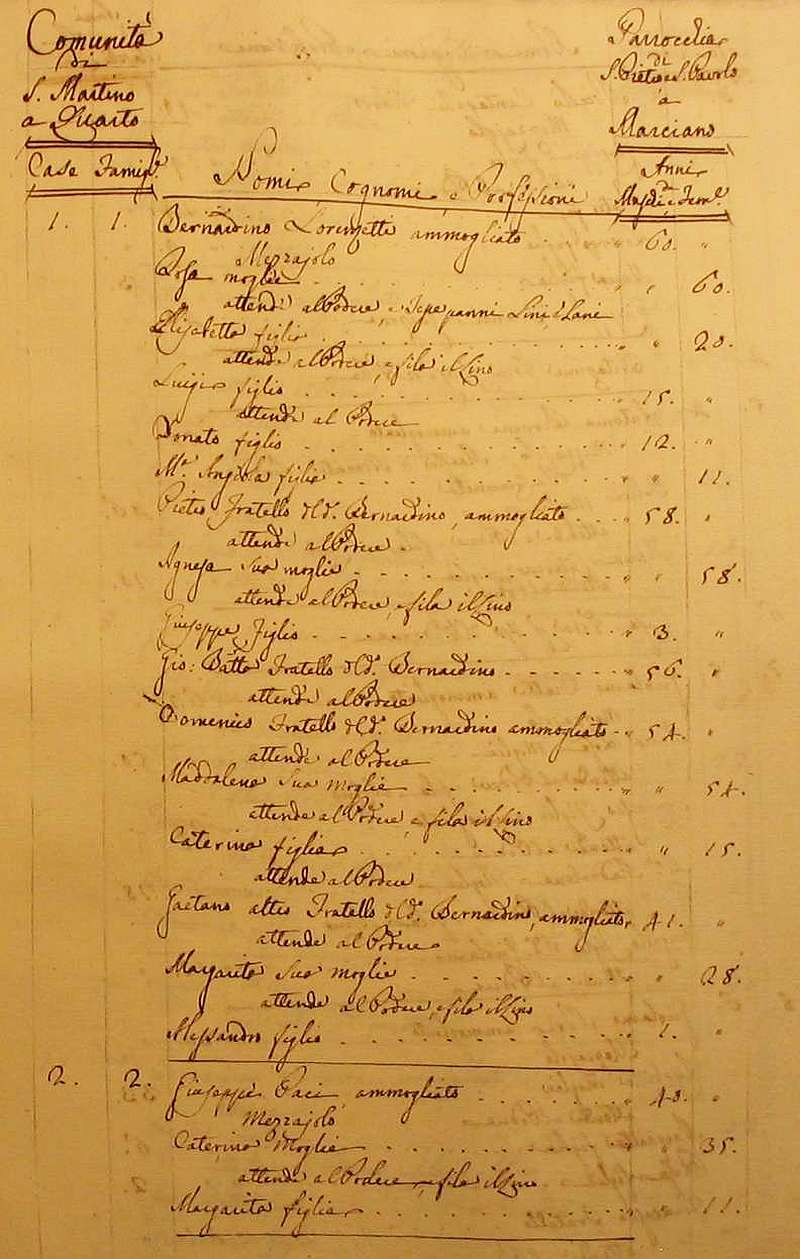 Comunità
di
S. Martino
a Quarto
Parrocchia
di
S. Pietro e S. Pavolo
a
Marciano
Case Famigl.
Nomi, Cognomi, e Professioni
Anni
di
Maschi e Fem.
1. 1. Bernardino Lorenzetti ammogliato " 60. "
Mezzajolo
Rosa moglie " " 60.
attende al Podere, e Tesse panni Lini e Lani
Elisabetta figlia " " 20.
attende al Podere, e fila il Lino
Luigi figlio " 15. "
attende al Podere
Donato figlio " 12. "
M.ª Angiola figlia " " 11.
Pietro Fratello del d.º Bernardino, ammogliato " 58. "
attende al Podere
Agnesa sua moglie " " 58.
attende al Podere, e fila il Lino
Giuseppe Figlio " 3. "
Gio: Batta Fratello del d.º Bernardino " 56. "
attende al Podere
Domenico Fratello del d.º Bernardino ammogliato " 54. "
attende al Podere
Maddalena sua moglie " " 54.
attende al Podere e fila il Lino
Caterina figlia " " 15.
attende al Podere
Gaetano altro Fratello del d.º Bernardino, ammogliato 41. "
attende al Podere
Margarita sua moglie " " 28.
attende al Podere, e fila il Lino
Alessandro figlio " 1. "
2. 2. Giuseppe Paci, ammogliato " 40. "
Mezzajolo
Caterina Moglie " " 35.
attende al Podere, e fila il Lino
Margarita figlia " " 11.